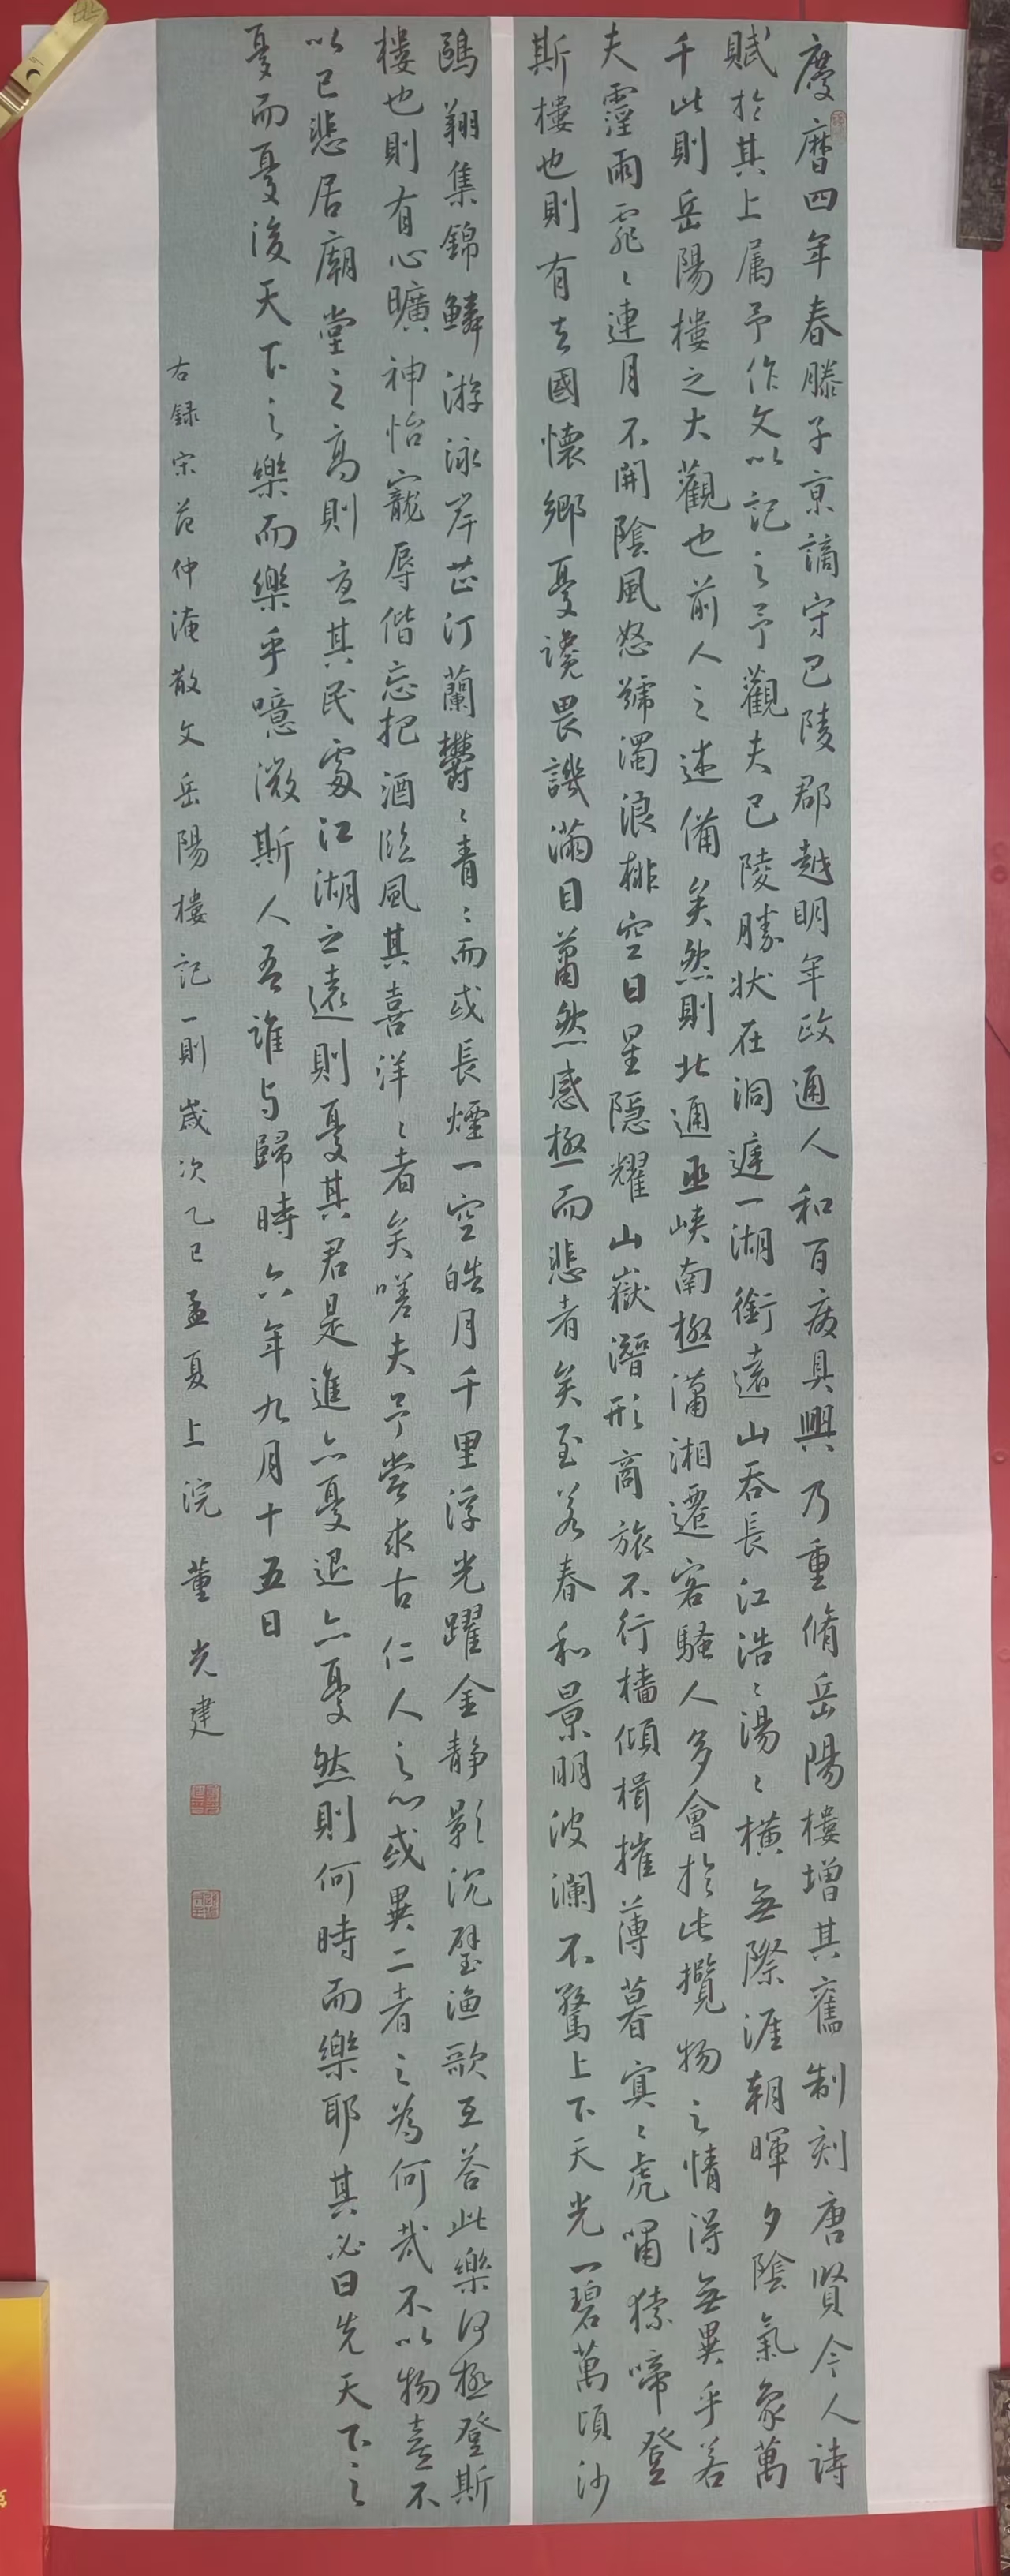 慶曆四年春滕子京謫守巴陵郡越明年政通人和百廢具興乃重脩岳陽樓增其舊制刻唐賢今人詩
賦於其上属予作文以記之予觀夫巴陵勝狀在洞遅一湖銜遠山吞長江浩〻湯〻橫無際涯朝暉夕陰氣象萬
千此則岳陽樓之大觀也前人之述備矣然則北通巫峽南極瀟湘遷客騷人多會於此攬物之情得無異乎若
夫霪雨霏〻連月不開陰風怒號濁浪排空日星隱耀山嶽潛形商旅不行檣傾楫摧薄暮冥〻虎嘯猿啼登
斯樓也則有去國懷鄉憂讒畏譏滿目蕭然感極而悲者矣至若春和景明波瀾不驚上下天光一碧萬頃沙
鷗翔集錦鱗游泳岸芷汀蘭鬱〻青〻而或長煙一空皓月千里浮光躍金静影沉璧漁歌互答此樂何極登斯
樓也則有心曠神怡寵辱偕忘把酒臨風其喜洋〻者矣嗟夫予嘗求古仁人之心或異二者之為何哉不以物喜不
以己悲居廟堂之高則憂其民處江湖之遠則憂其君是進亦憂退亦憂然則何時而樂耶其必曰先天下之
憂而憂後天下之樂而樂乎噫微斯人吾誰与歸時六年九月十五日
右録宋范仲淹散文岳陽樓記一則歲次乙巳孟夏上浣董光建